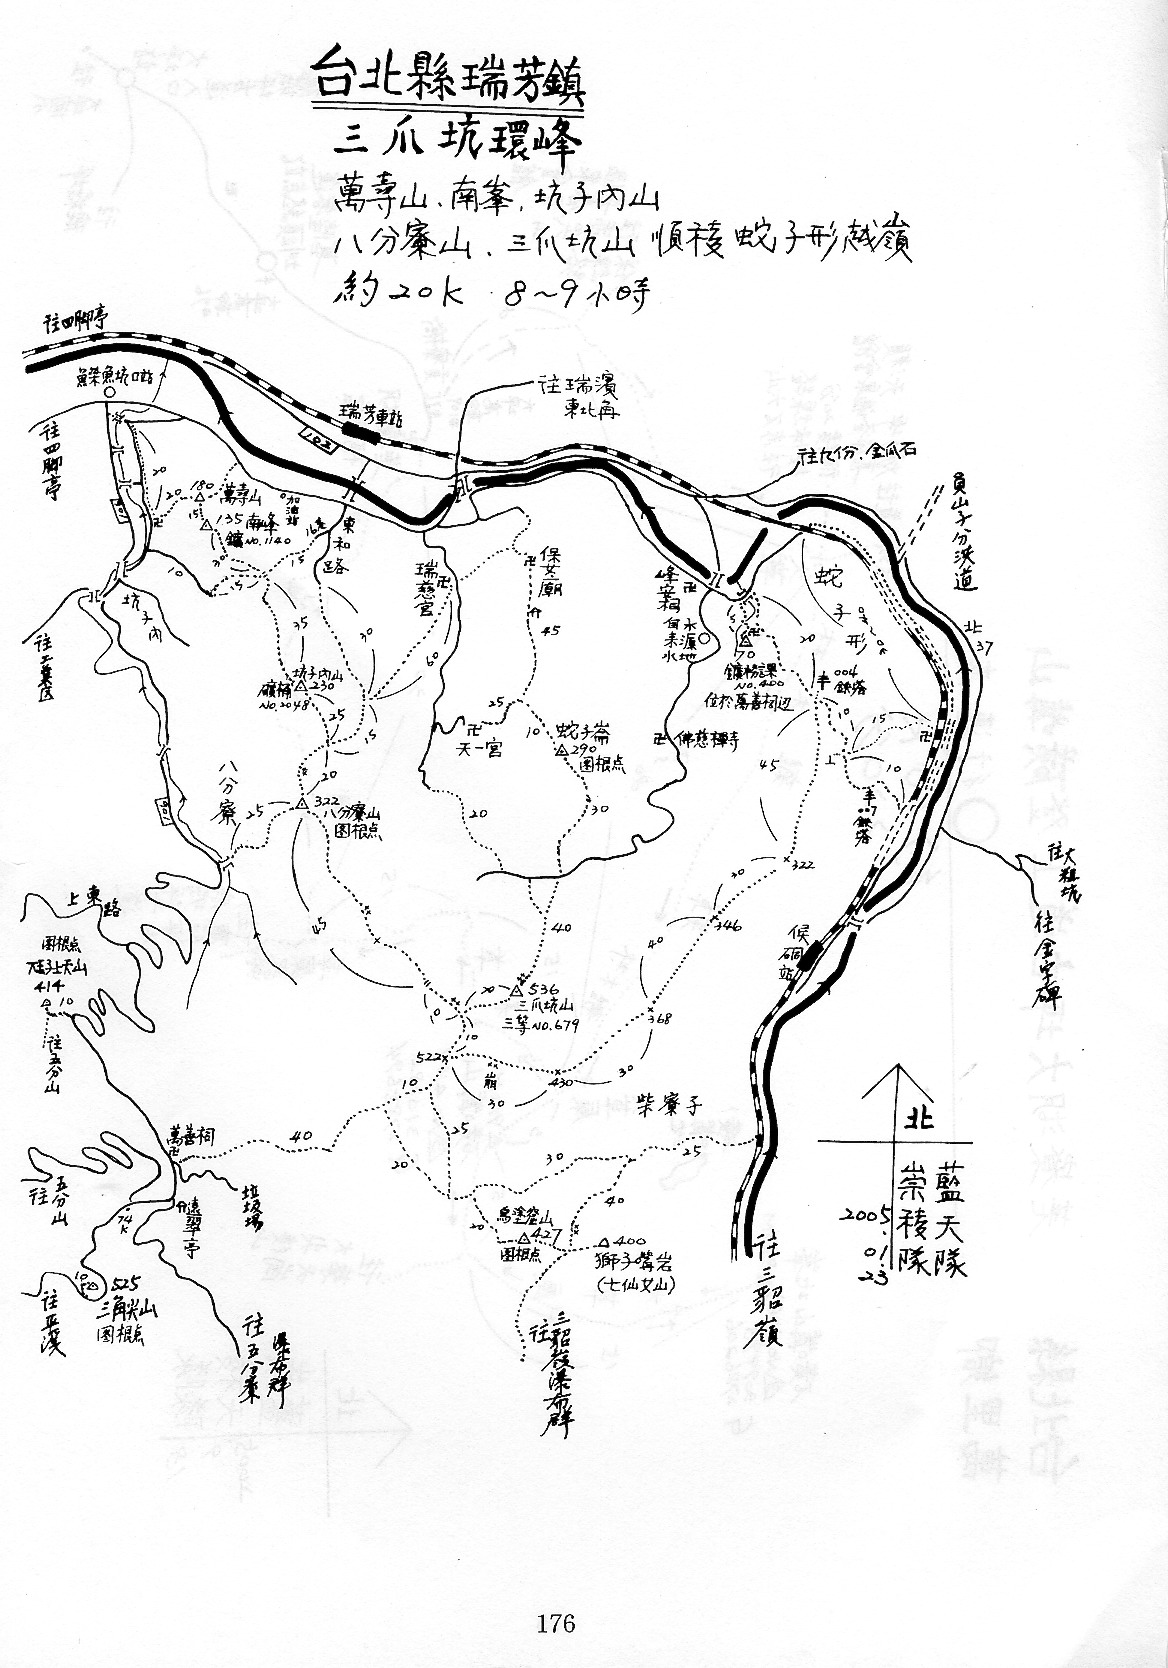 台北縣瑞芳鎮
三爪坑環峰
萬壽山、南峯、坑子內山
八分寮山、三爪坑山 順稜蛇子形越嶺
約20K 8~9小時
往四脚亭
鰈魚坑口站
往四脚亭
瑞芳車站
102
往瑞濱
東北角
往九份、金瓜石
員山子分洪道
20
20
180
萬壽山
15
135 南峰
鑛NO.1140
加油站
東和路
30
15
5
10
坑子內
往工業区
瑞慈宮
保安廟
45
峰安祠
自來水
水源地
蛇子形
北37
70
鑛務課
NO.400
位於萬善祠辺
20
004
鉄塔
35
30
60
坑子內山
230
礦補
NO.2048
25
15
20
322
八分寮山
图根点
八分寮
25
天一宮
25
10
蛇子崙
290
图根点
20
30
佛慈禪寺
45
10
15
10
鉄塔
322
30
346
40
368
往大粗坑
往金字碑
侯硐站
上東路
图根点
414
10
往五分山
45
40
20
536
三爪坑山
三等NO.679
10
10
522
崩
30
430
30
柴寮子
10
25
20
30
25
40
40
萬善祠
垃圾場
往五分山
遠翠亭
74K
10
525
三角尖山
图根点
往平溪
往五分寮
瀑布群
20
427
图根点
400
獅子嘴岩
(七仙女山)
往三貂嶺瀑布群
往三貂嶺
北
藍天隊
崇稜隊
2005.
01.
23
176